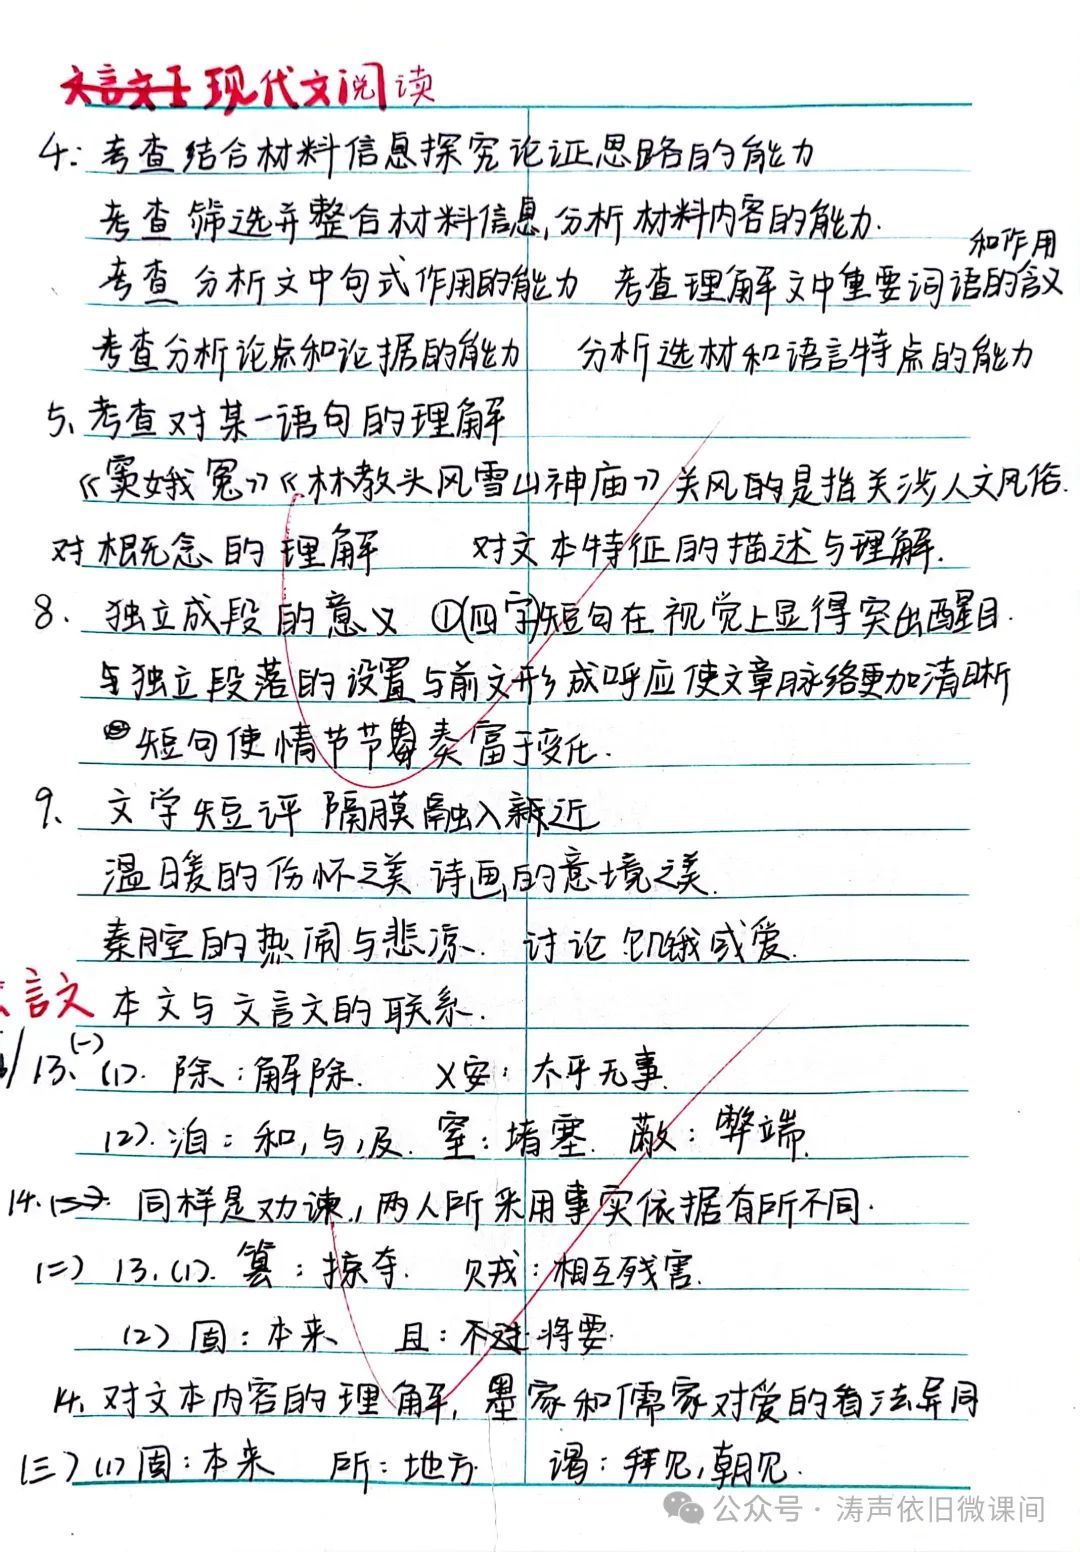 现代文阅读
4: 考查结合材料信息探究论证思路的能力
考查筛选并整合材料信息,分析材料内容的能力.
和作用
考查分析文中句式作用的能力 考查理解文中重要词语的含义
考查分析论点和论据的能力 分析选材和语言特点的能力
5、考查对某一语句的理解
《窦娥冤》《林教头风雪山神庙》关风的是指关涉人文风俗.
对概念的理解 对文本特征的描述与理解.
8. 独立成段的意义 ①(四字)短句在视觉上显得突出醒目.
与独立段落的设置与前文形成呼应使文章脉络更加清晰
②短句使情节节奏富于变化.
9、文学短评 隔膜融入亲近
温暖的伤怀之美 诗画的意境之美.
秦腔的热闹与悲凉. 讨论饥饿或爱.
言文 本文与文言文的联系.
13、(一)(1). 除:解除. 乂安:太平无事.
(2). 洎:和,与,及. 窒:堵塞. 蔽:弊端.
14. 同样是劝谏,两人所采用事实依据有所不同.
(二) 13.(1). 篡:掠夺. 贼:相互残害.
(2) 固:本来 且:将要.
14. 对文本内容的理解,墨家和儒家对爱的看法异同
(三)(1)固:本来 所:地方 谒:拜见,朝见.
公众号·涛声依旧微课间